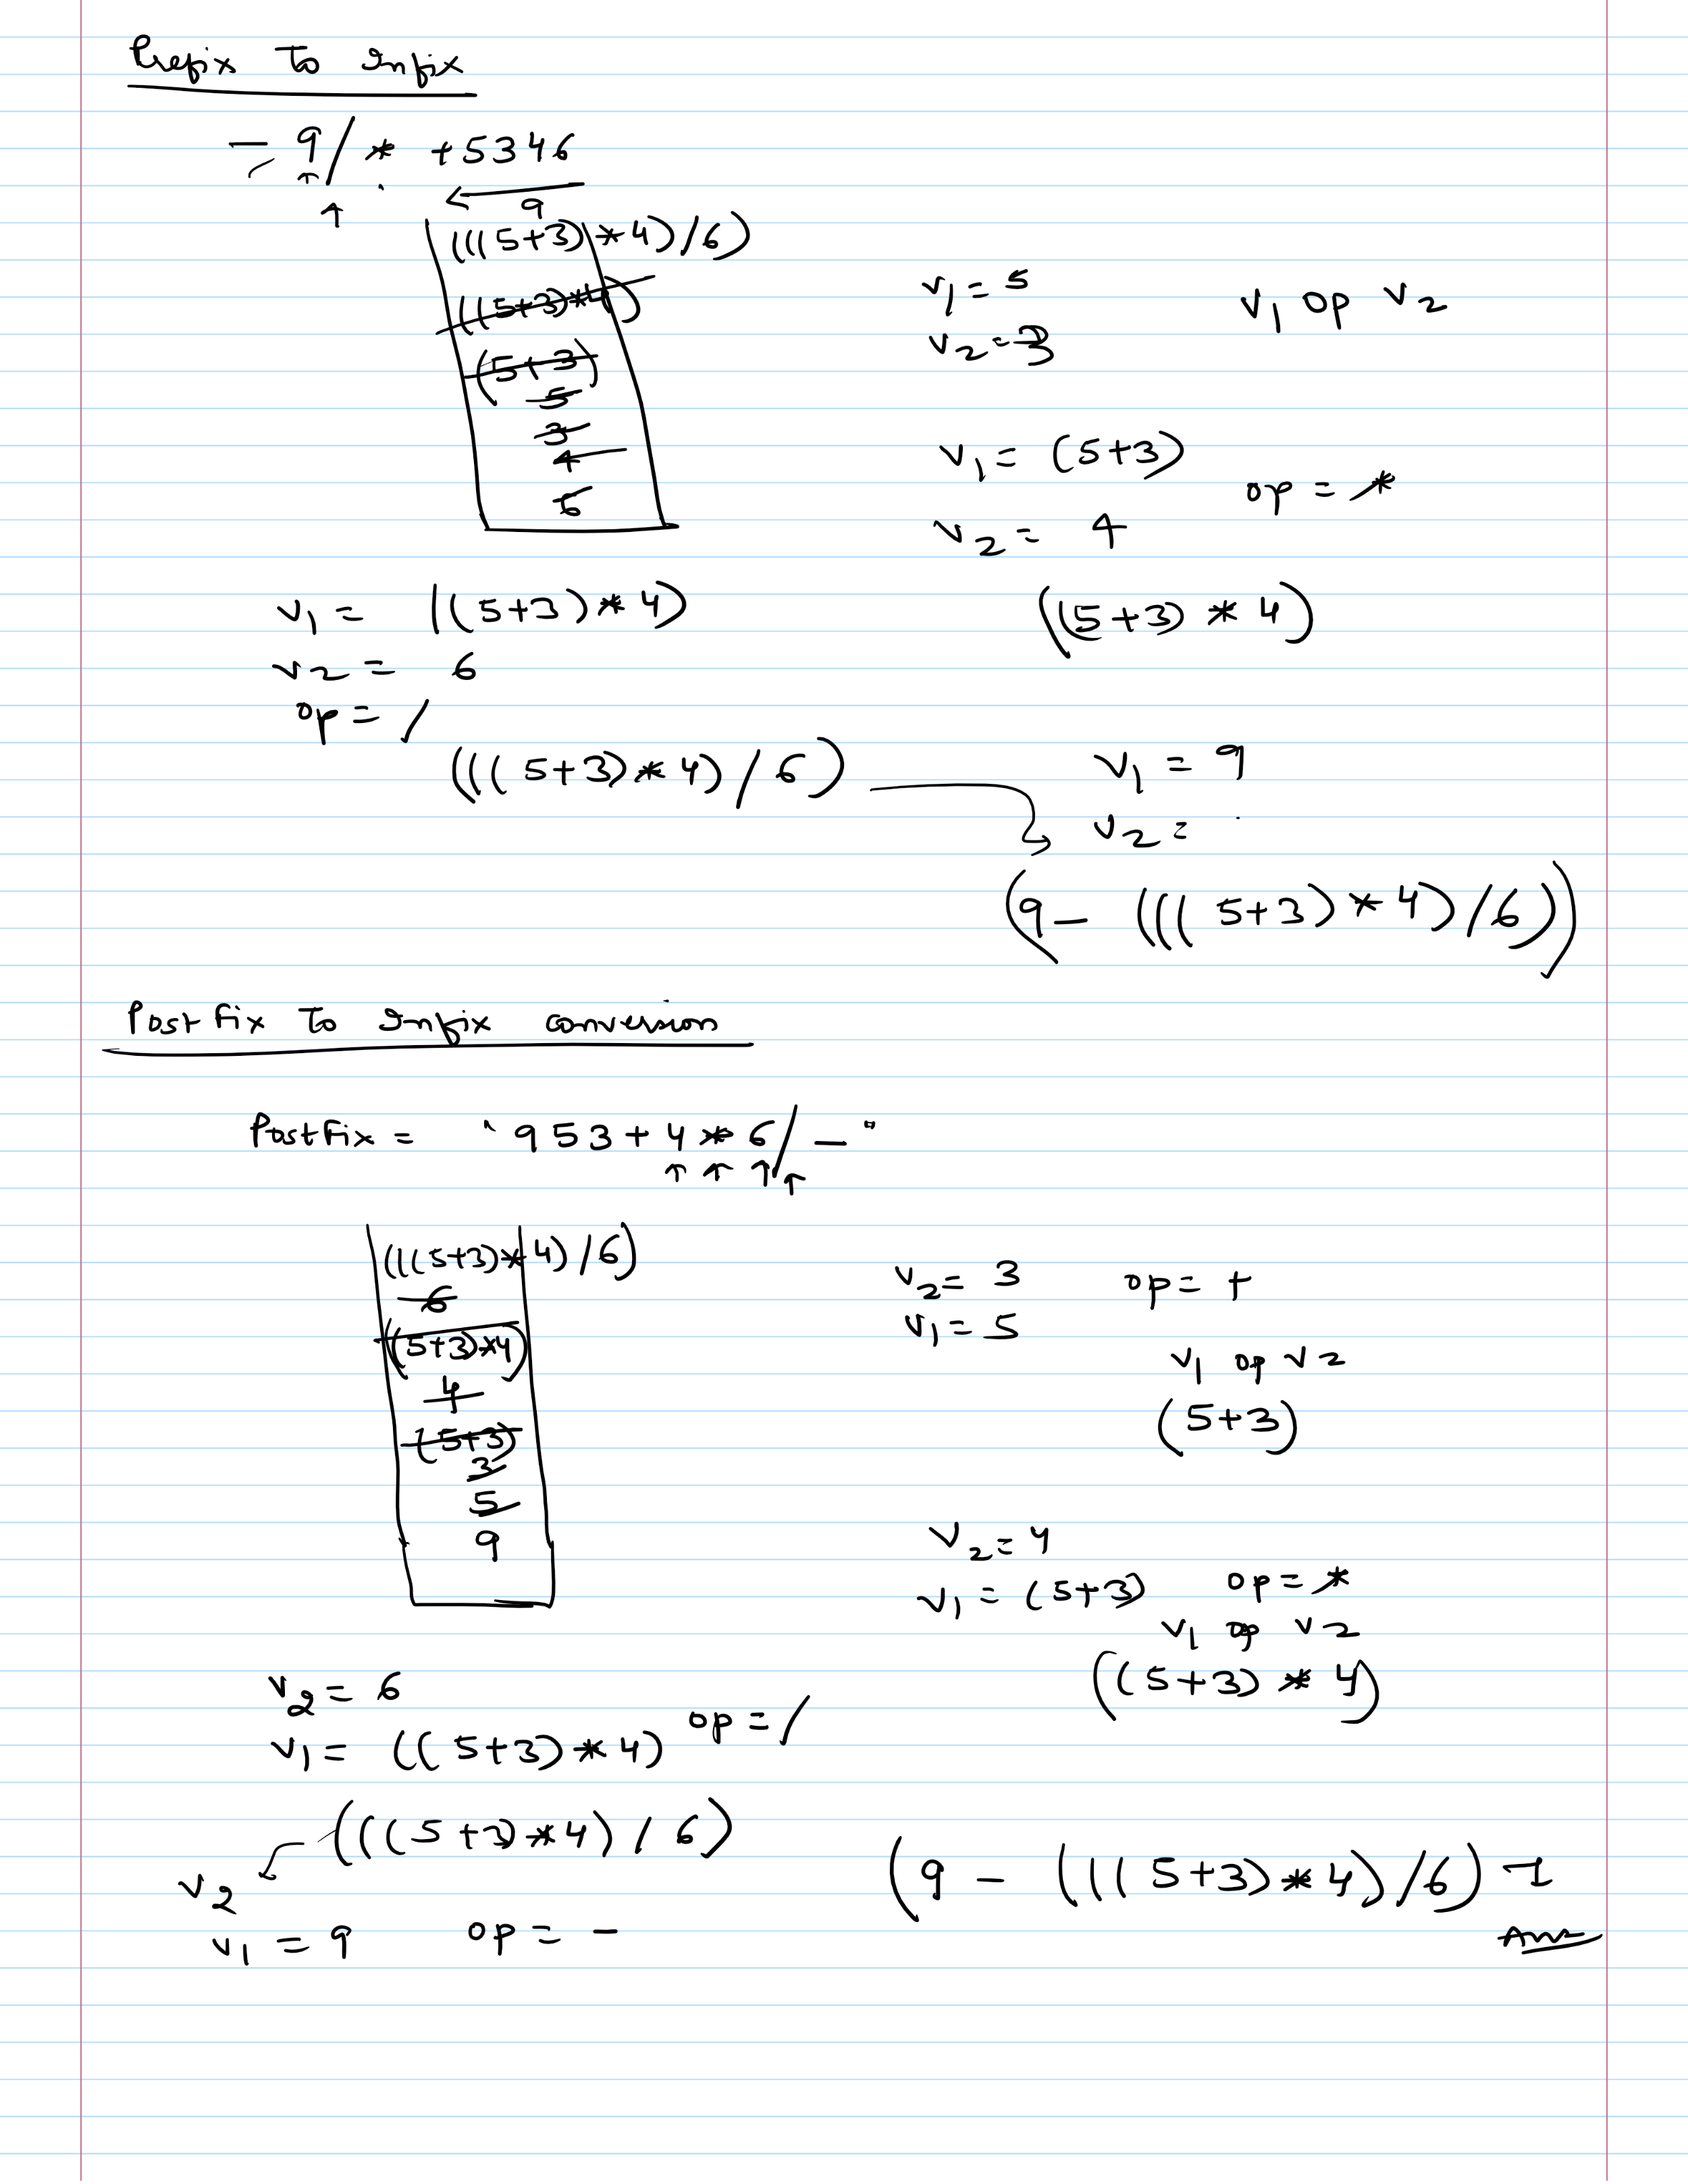 Prefix To Infix
- 9 / * + 5 3 4 6
9
(((5+3)*4)/6)
((5+3)*4)
(5+3)
5
3
4
6
v1 = 5
v2 = 3
v1 op v2
v1 = (5+3)
op = *
v2 = 4
((5+3) * 4)
v1 = ((5+3) * 4)
v2 = 6
op = /
(((5+3) * 4) / 6)
v1 = 9
v2 =
(9 - (((5+3) * 4) / 6))
PostFix To Infix conversion
PostFix = " 9 5 3 + 4 * 6 / - "
(((5+3)*4)/6)
6
((5+3)*4)
4
(5+3)
3
5
9
v2 = 3 op = +
v1 = 5
v1 op v2
(5+3)
v2 = 4
v1 = (5+3) op = *
v1 op v2
((5+3) * 4)
v2 = 6
v1 = ((5+3) * 4) op = /
(((5+3) * 4) / 6)
v2
v1 = 9 op = -
(9 - (((5+3) * 4) / 6)
Ans